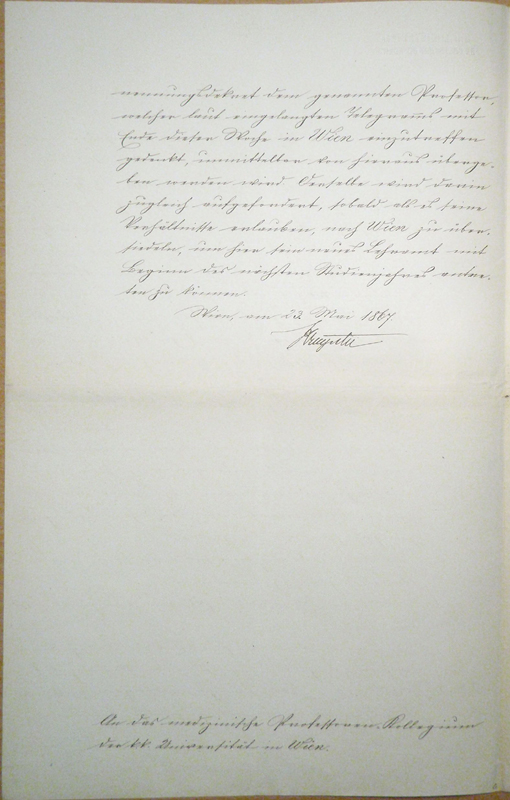 nennungsdekret dem genannten Professor,
welcher laut eingelangten Telegramms mit
Ende dieser Woche in Wien einzutreffen
gedenkt, unmittelbar von hieraus überge-
ben werden wird. Derselbe wird darin
zugleich aufgefordert, sobald als es seine
Verhältnisse erlauben, nach Wien zu über-
siedeln, um hier sein neues Lehramt mit
Beginn des nächsten Studienjahres antre-
ten zu können.
Wien, am 22. Mai 1867
An das medizinische Professoren-Kollegium
der kk. Universität in Wien.